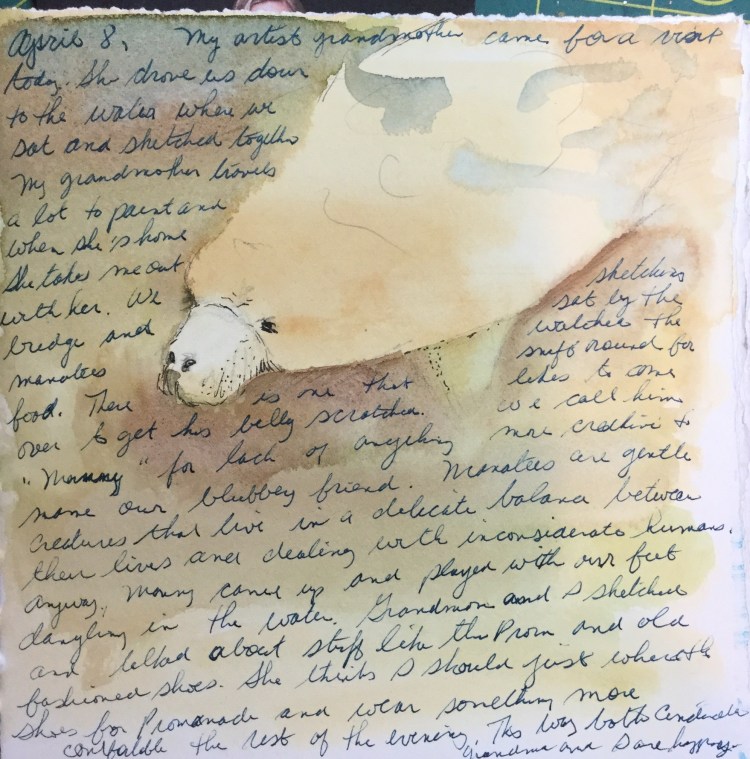 April 8, My artist grandmother came for a visit
today. She drove us down
to the water where we
sat and sketched together
My grandmother travels
a lot to paint and
when she's home
She takes me out sketching
with her. We sat by the
bridge and watched the
manatees sniff around for
food. There is one that likes to come
over to get his belly scratched. We call him
"Manny" for lack of anything more creative to
name our blubbery friend. Manatees are gentle
creatures that live in a delicate balance between
their lives and dealing with inconsiderate humans.
Anyway, Manny came up and played with our feet
dangling in the water. Grandmom and I sketched
and talked about stuff like the Prom and old
fashioned shoes. She thinks I should just wear the
shoes for Promanade and wear something more
comfortable the rest of the evening. This way both
Grandma and I are happy